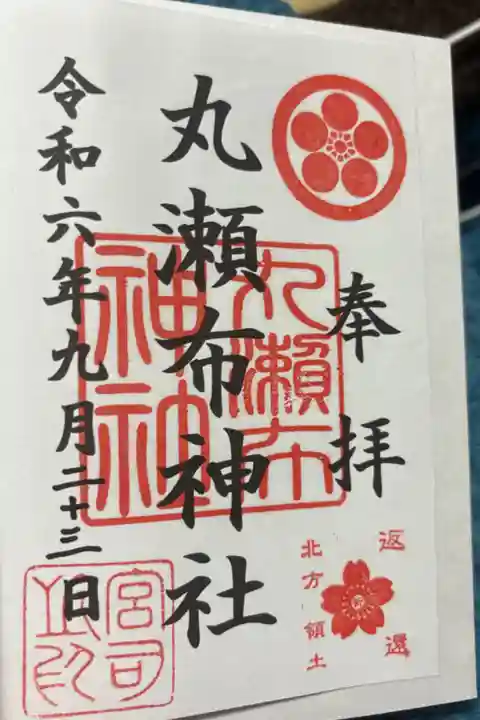 奉拝
丸瀬布神社
令和六年九月二十三日
丸瀬布
神社
宮司
之印
返還
北方領土